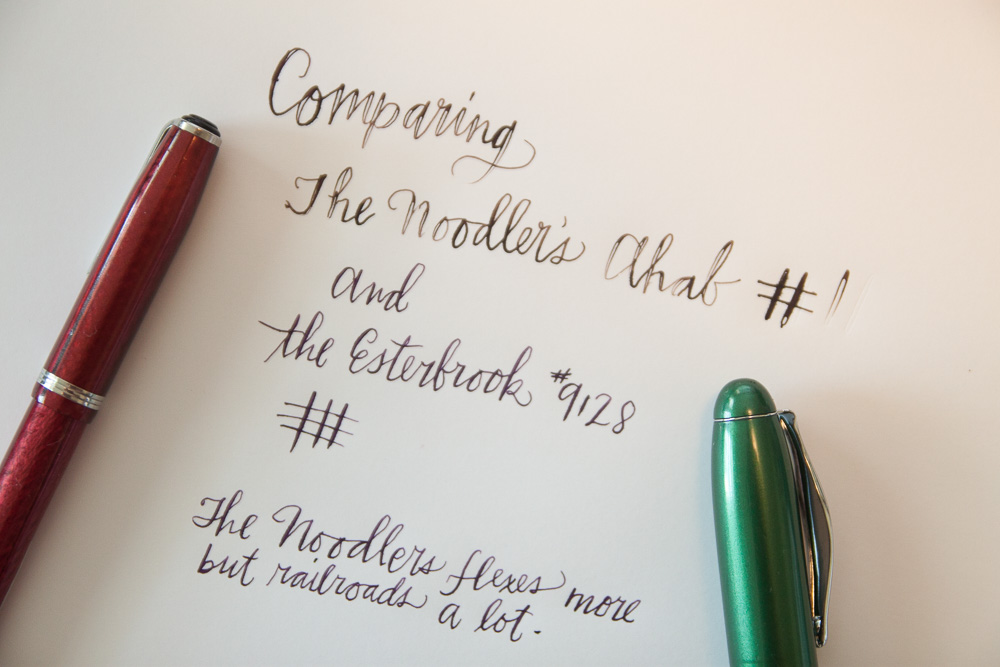 Comparing
The Noodler's Ahab #1
and
the Esterbrook #9128
The Noodlers flexes more
but railroads a lot.